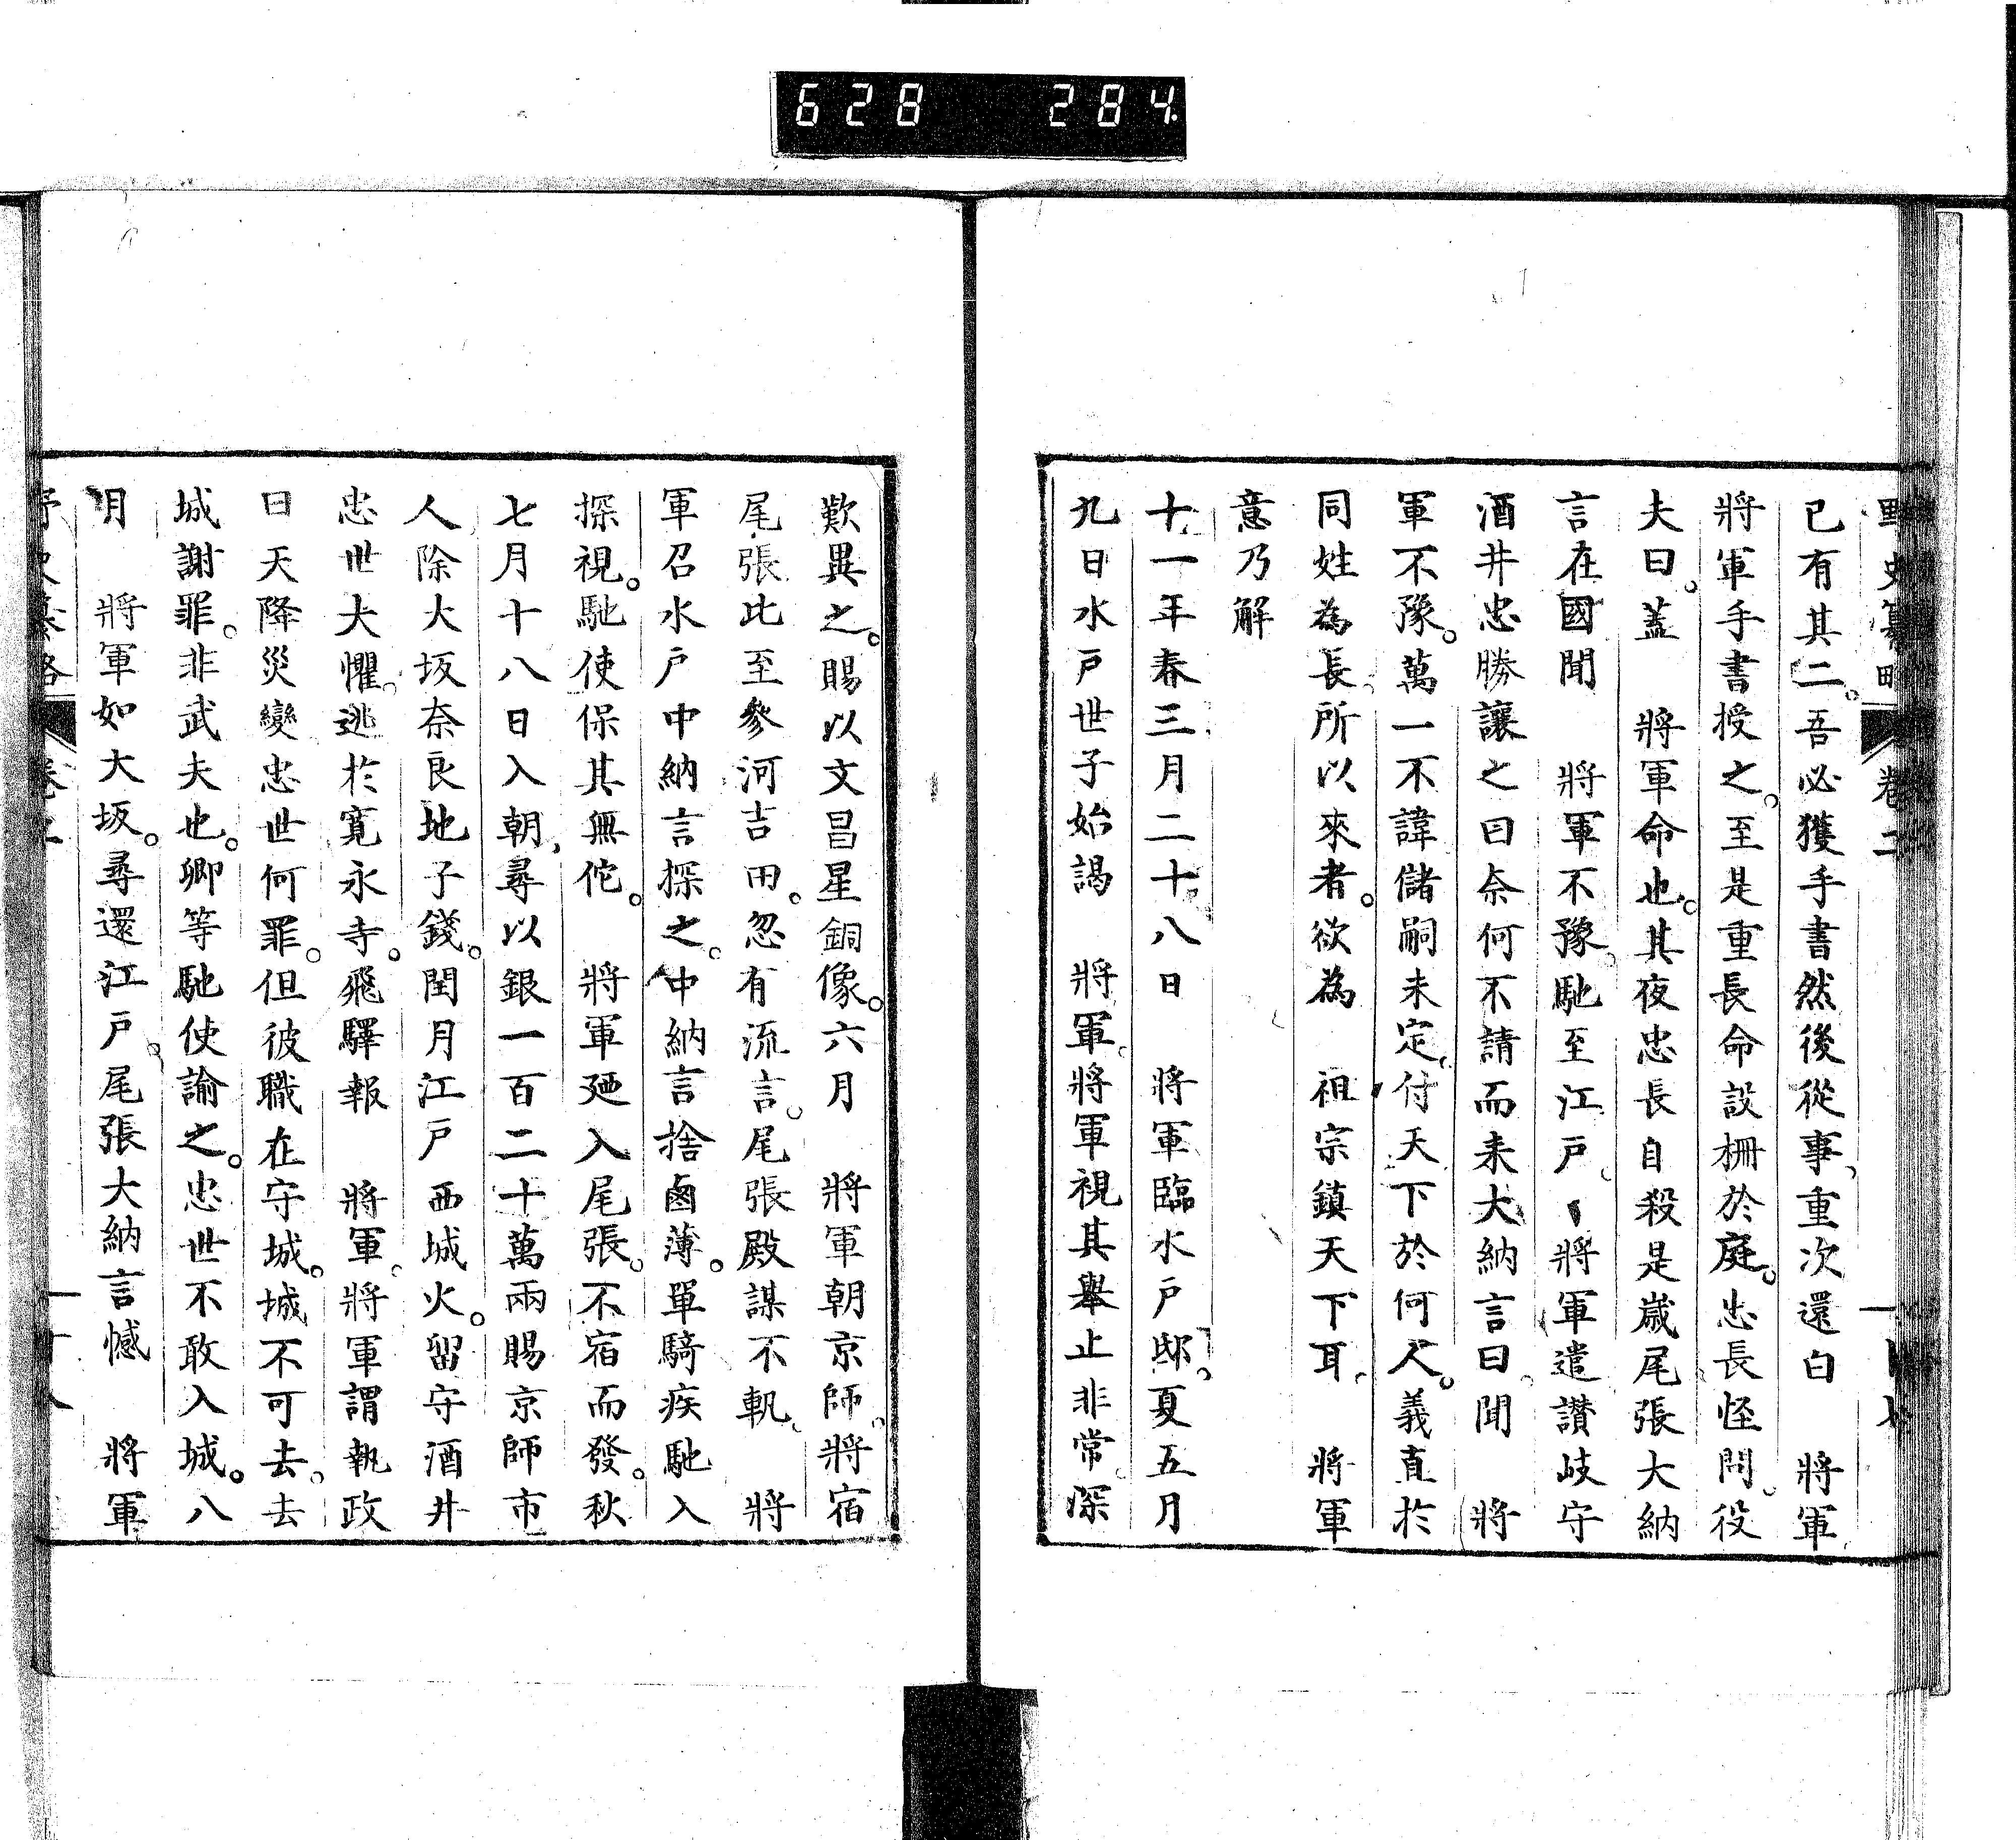 628 284
野史纂略 卷二
已有其二。吾必獲手書然後從事。重次還白　將軍
將軍手書授之。至是重長命設柵於庭。忠長怪問。役
夫曰。蓋　將軍命也。其夜忠長自殺是歲尾張大納
言在國聞　將軍不豫。馳至江戶。將軍遣讃岐守
酒井忠勝讓之曰奈何不請而来大納言曰。聞　將
軍不豫。萬一不諱儲嗣未定。付天下於何人。義直於
同姓為長。所以來者。欲為　祖宗鎮天下耳。　將軍
意乃解
十一年春三月二十八日　將軍臨水戶邸。夏五月
九日水戶世子始謁　將軍。將軍視其舉止非常。深
歎異之。賜以文昌星銅像。六月　將軍朝京師。將宿
尾張比至參河吉田。忽有流言。尾張殿謀不軌。　將
軍召水戶中納言探之。中納言捨鹵薄。單騎疾馳入
探視。馳使保其無佗。　將軍廼入尾張。不宿而發。秋
七月十八日入朝、尋以銀一百二十萬兩賜京師市
人除大坂奈良地子錢。閏月江戶西城火。留守酒井
忠世大懼。逃於寬永寺。飛驛報　將軍。將軍謂執政
曰天降災變忠世何罪。但彼職在守城。城不可去。去
城謝罪。非武夫也。卿等馳使諭之。忠世不敢入城。八
月　將軍如大坂。尋還江戶。尾張大納言憾　將軍
野史纂略 卷之